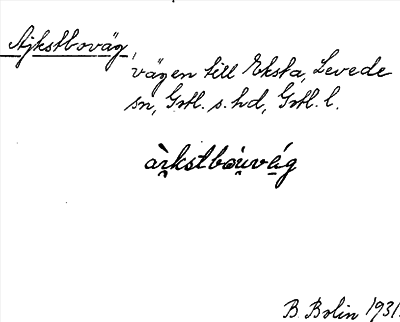 Ajkstboväg,
vägen till Eksta, Levede
sn, Gotl. s. hd, Gotl. l.
àrkstbóuvág
B. Bolin 1931.